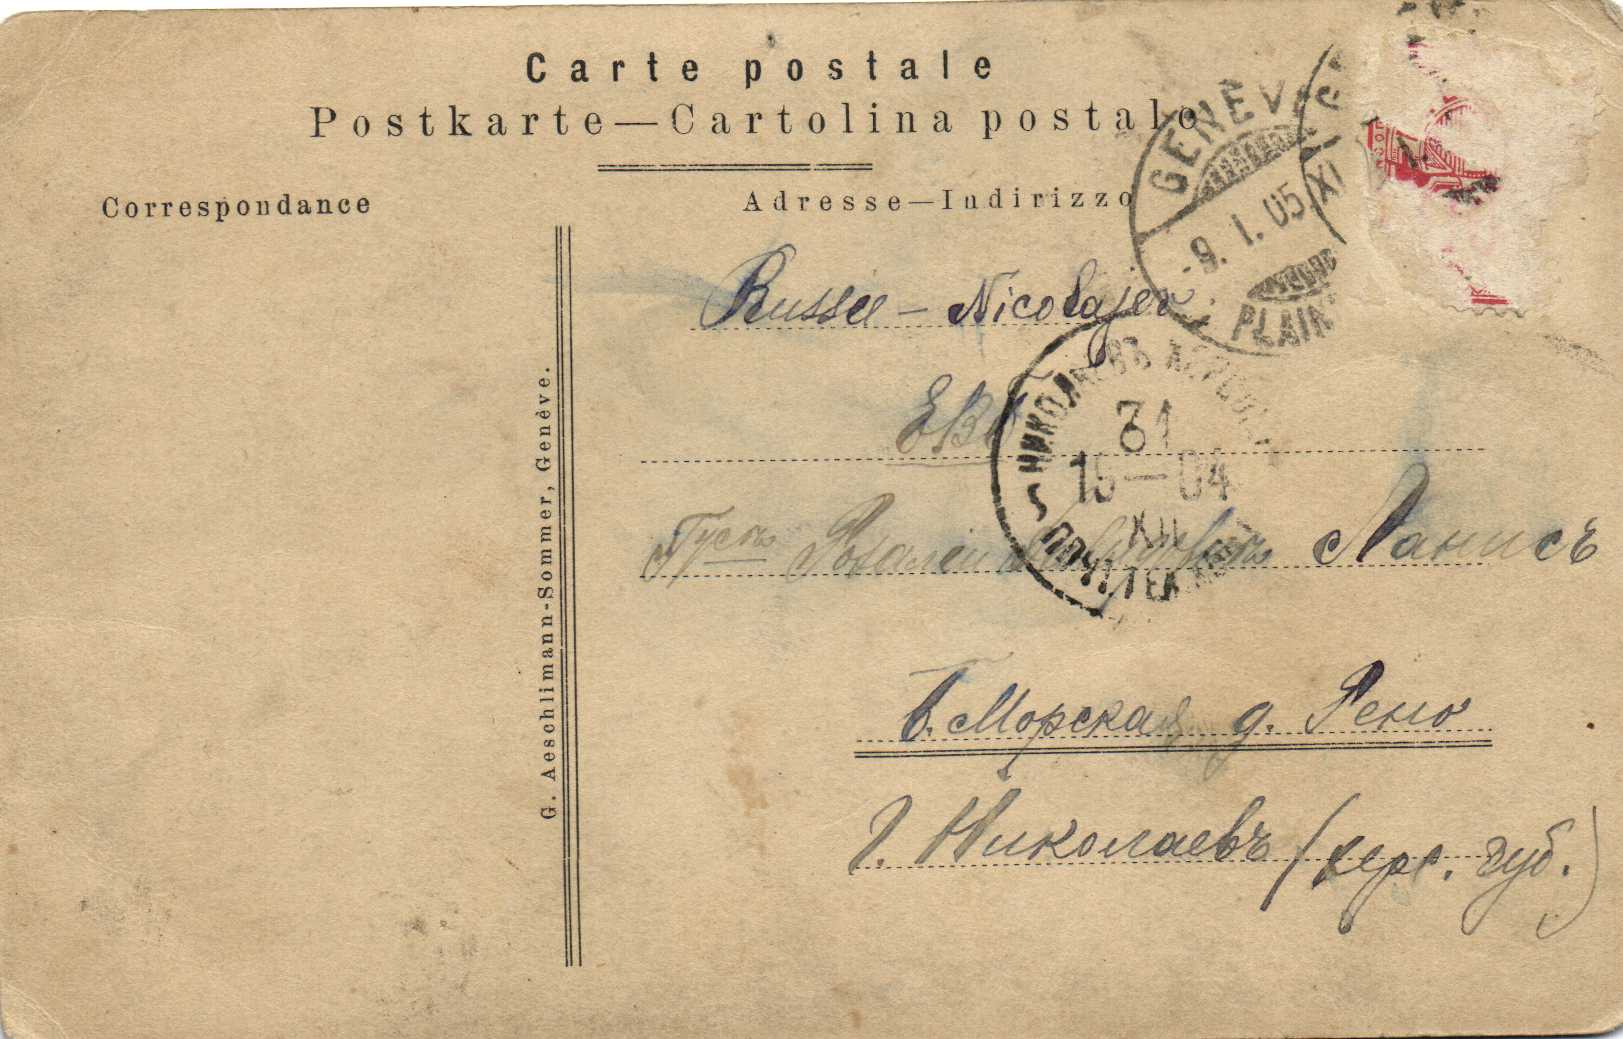 Carte postale
Postkarte—Cartolina postale
Correspondance
Adresse—Indirizzo
GENÈVE
-9. I. 05. XI
PLAIN
Russie - Nicolajev
НИКОЛАЕВЪ ХЕРСОН.
31
15—04
XII
ПОЧ. ТЕЛ.
5
ЕВБ
Розалеи Ланисъ
Б. Морская д. Рено
г. Николаевъ (херс. губ.)
G. Aeschlimann-Sommer, Genève.